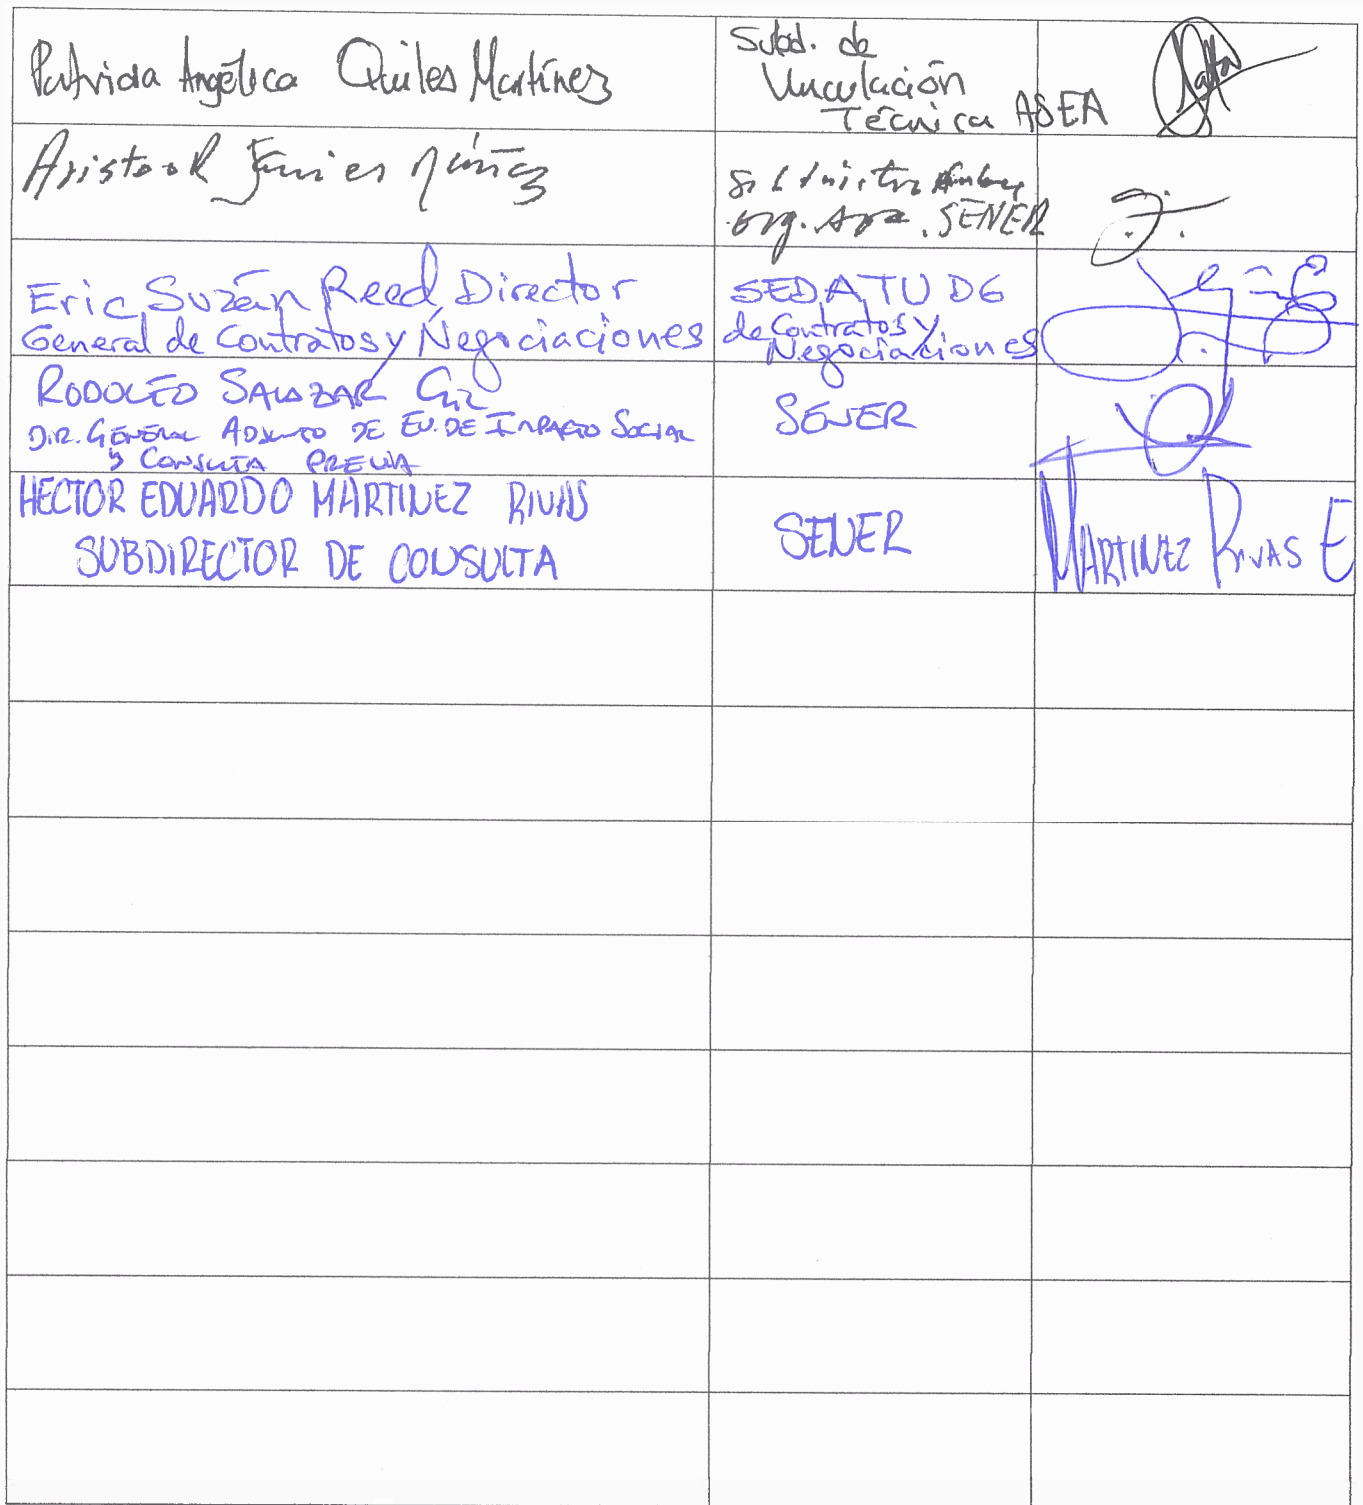 Patricia Angélica Quiles Martínez
Subd. de
Vinculación
Técnica ASEA
Núñez
org. SENER
Eric Suzán Reed, Director
General de Contratos y Negociaciones
SEDATU DG
de Contratos y
Negociaciones
RODOLFO SALAZAR GIL
DIR. GENERAL ADJUNTO DE EV. DE IMPACTO SOCIAL
Y CONSULTA PREVIA
SENER
HECTOR EDUARDO MARTINEZ RIVAS
SUBDIRECTOR DE CONSULTA
SENER
MARTINEZ RIVAS E